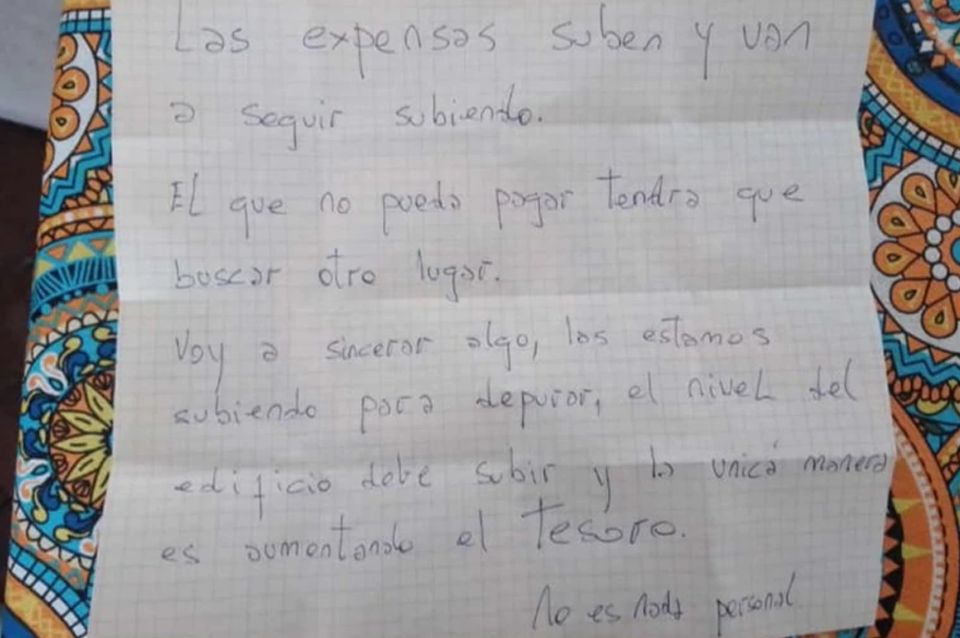 Las expensas suben y van
a seguir subiendo.
El que no pueda pagar tendra que
buscar otro lugar.
Voy a sincerar algo, las estamos
subiendo para depurar, el nivel del
edificio debe subir y la unica manera
es aumentando el Tesoro.
No es nada personal.